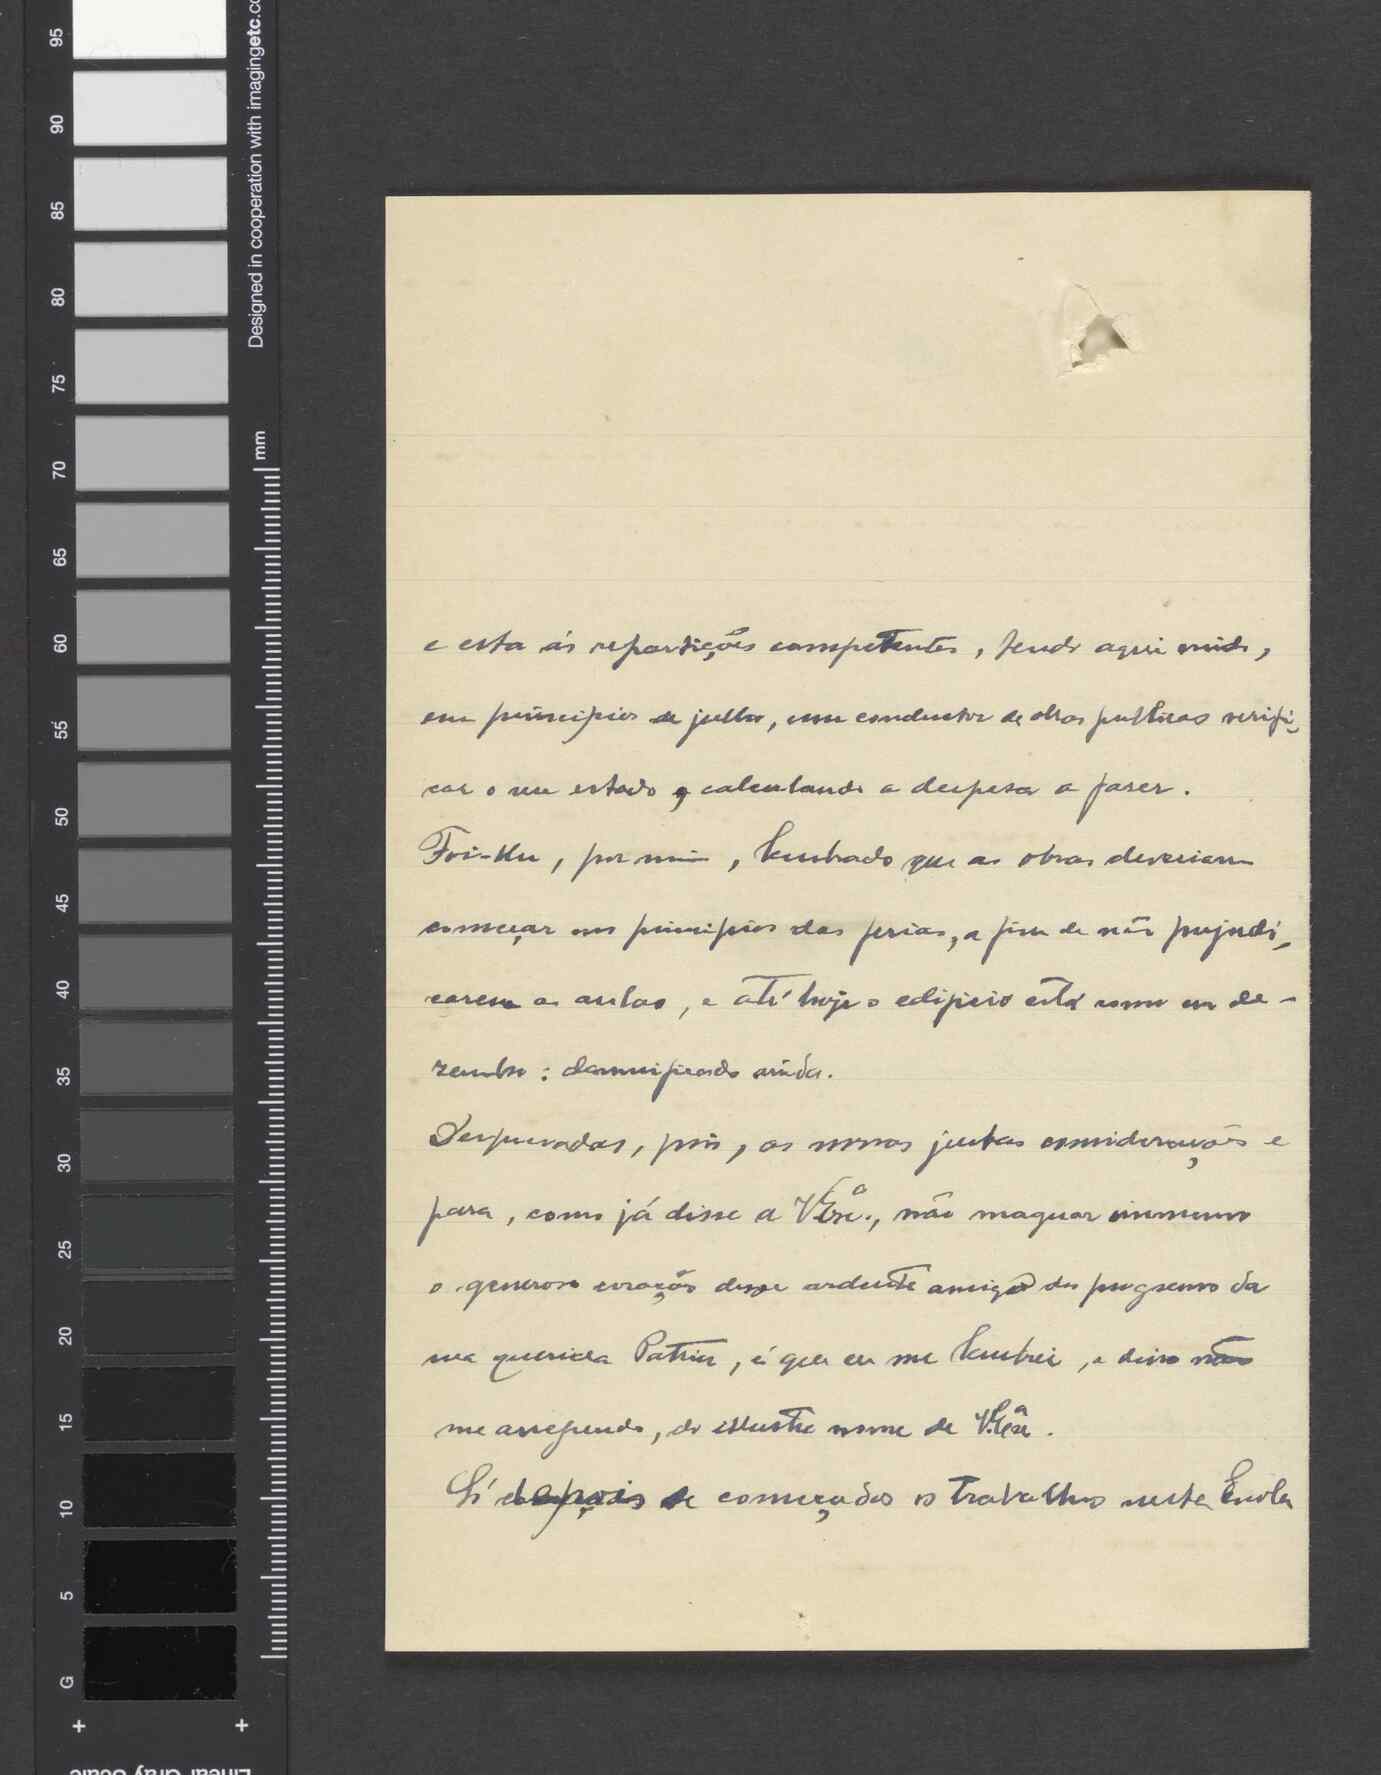 95
90
85
80
75
70
65
60
55
50
45
40
35
30
25
20
15
10
5
G
Designed in cooperation with imagingetc.co
mm
e esta ás repartições competentes, tendo aqui vindo,
em principios de julho, um conductor de obras publicas verifi-
car o seu estado, calculando a despesa a fazer.
Foi-lhe, por mim, lembrado que as obras deveriam
começar nos principios das ferias, a fim de não prejudi-
carem as aulas, e até hoje o edificio está como em de-
zembro: damnificado ainda.
Desprezadas, pois, as nossas justas considerações e
para, como já disse a V. Exª., não maguar immenso
o generoso coração desse ardente amigo do progresso da
sua querida Patria, é que eu me lembrei, e disso não
me arrependo, do illustre nome de V. Exª.
Só depois de começados os trabalhos nesta Escola